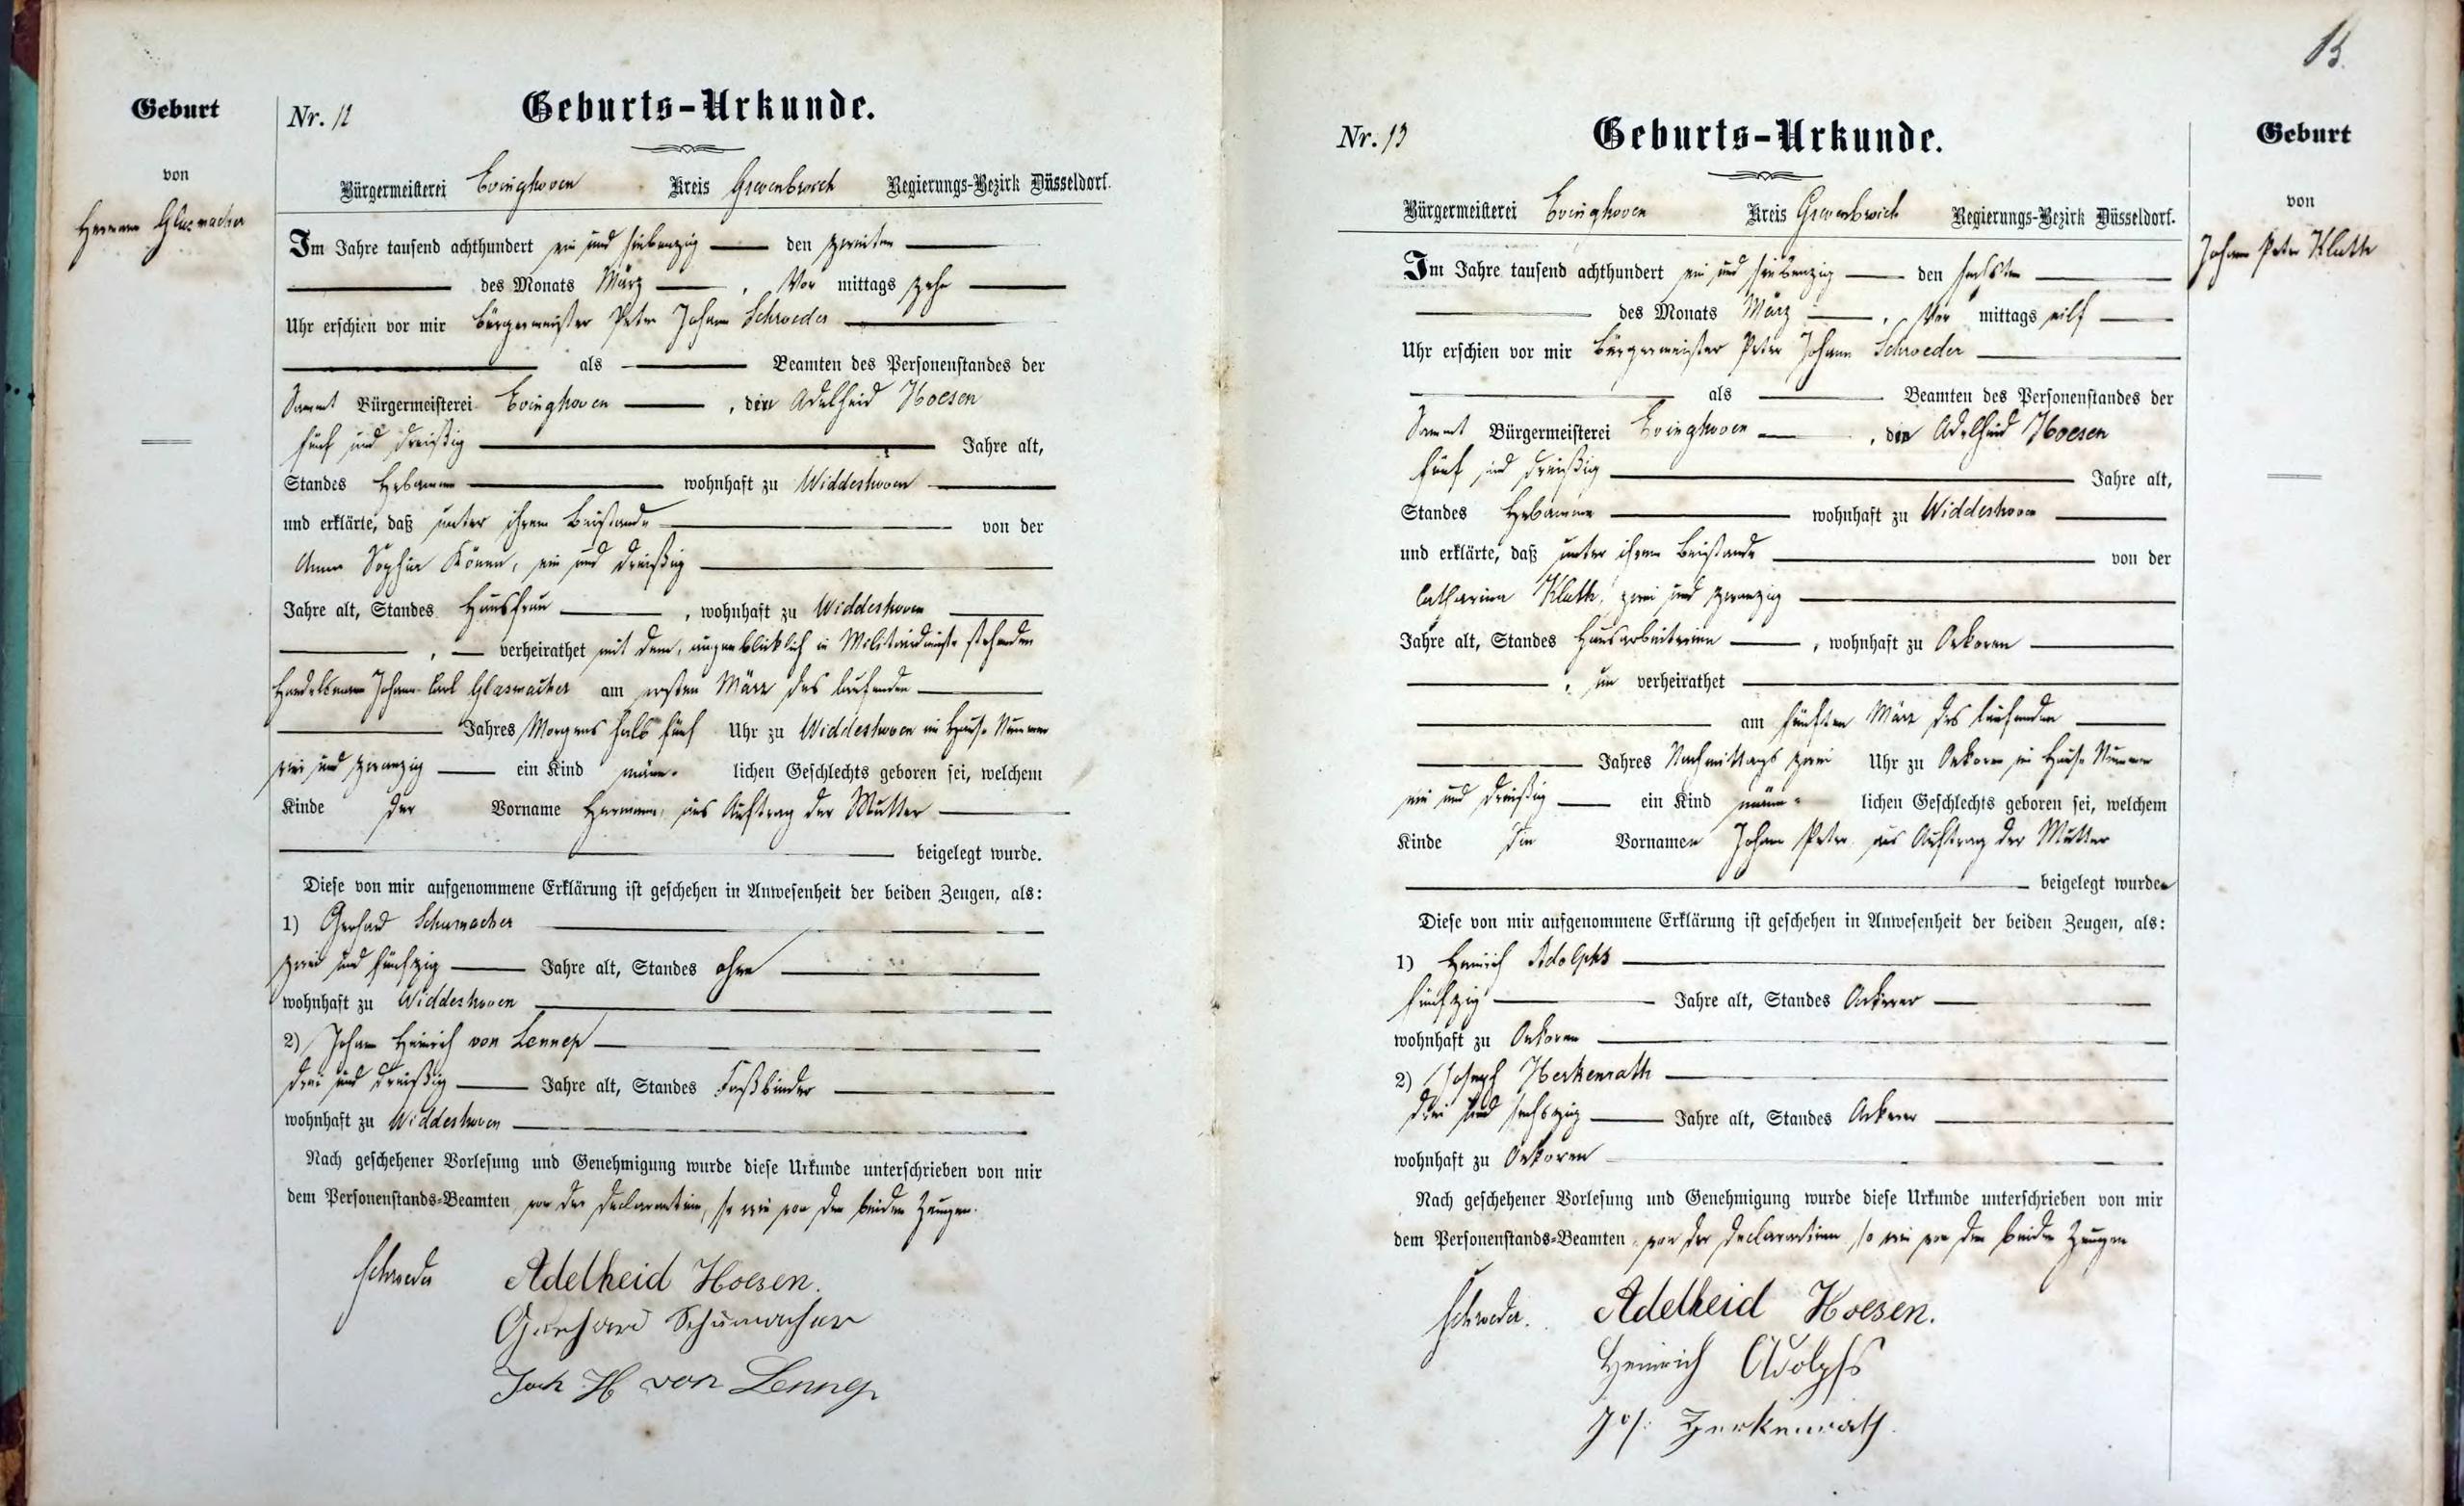 Geburt
von
Hermann Glasmacher
Nr. 12
Geburts-Urkunde.
Bürgermeisterei Evinghoven Kreis Grevenbroich Regierungs-Bezirk Düsseldorf.
Im Jahre tausend achthundert ein und siebenzig den zweiten
des Monats März, Vor mittags zehn
Uhr erschien vor mir Bürgermeister Peter Johann Schroeder
als Beamten des Personenstandes der
Sammt Bürgermeisterei Evinghoven, die Adelheid Hoesen
fünf und dreißig Jahre alt,
Standes Hebamme wohnhaft zu Widdeshoven
und erklärte, daß unter ihrem Beistande von der
Anna Sophia Könen, ein und dreißig
Jahre alt, Standes Hausfrau, wohnhaft zu Widdeshoven
, verheirathet mit dem, augenblicklich in Militairdienste stehenden
Handelsmann Johann Carl Glasmacher am ersten März des laufenden
Jahres Morgens halb fünf Uhr zu Widdeshoven im Hause Nummer
und zwanzig ein Kind männ- lichen Geschlechts geboren sei, welchem
Kinde der Vorname Hermann, aus Auftrag der Mutter
beigelegt wurde.
Diese von mir aufgenommene Erklärung ist geschehen in Anwesenheit der beiden Zeugen, als:
1) Gerhard Schumacher
zwei und fünfzig Jahre alt, Standes ohne
wohnhaft zu Widdeshoven
2) Johann Heinrich von Lennep
drei und dreißig Jahre alt, Standes Faßbinder
wohnhaft zu Widdeshoven
Nach geschehener Vorlesung und Genehmigung wurde diese Urkunde unterschrieben von mir
dem Personenstands-Beamten von der Declarantin, so wie von den beiden Zeugen.
Schroeder Adelheid Hoesen.
Gerhard Schumacher
Joh H von Lennep
13.
Nr. 13
Geburts-Urkunde.
Bürgermeisterei Evinghoven Kreis Grevenbroich Regierungs-Bezirk Düsseldorf.
Im Jahre tausend achthundert ein und siebenzig den sechsten
des Monats März, Vor mittags eilf
Uhr erschien vor mir Bürgermeister Peter Johann Schroeder
als Beamten des Personenstandes der
Sammt Bürgermeisterei Evinghoven, die Adelheid Hoesen
fünf und dreißig Jahre alt,
Standes Hebamme wohnhaft zu Widdeshoven
und erklärte, daß unter ihrem Beistande von der
Catharina Kluth, zwei und zwanzig
Jahre alt, Standes Hausarbeiterinn, wohnhaft zu Oekoven
, un verheirathet
am fünften März des laufenden
Jahres Nachmittags zwei Uhr zu Oekoven im Hause Nummer
ein und dreißig ein Kind männ- lichen Geschlechts geboren sei, welchem
Kinde die Vornamen Johann Peter, aus Auftrag der Mutter
beigelegt wurden
Diese von mir aufgenommene Erklärung ist geschehen in Anwesenheit der beiden Zeugen, als:
1) Heinrich Adolphs
fünfzig Jahre alt, Standes Ackerer
wohnhaft zu Oekoven
2) Joseph Herkenrath
drei und sechszig Jahre alt, Standes Ackerer
wohnhaft zu Oekoven
Nach geschehener Vorlesung und Genehmigung wurde diese Urkunde unterschrieben von mir
dem Personenstands-Beamten, von der Declarantinn, so wie von den beiden Zeugen
Schroeder. Adelheid Hoesen.
Heinrich Adolphs
Jos: Herkenrath.
Geburt
von
Johann Peter Kluth